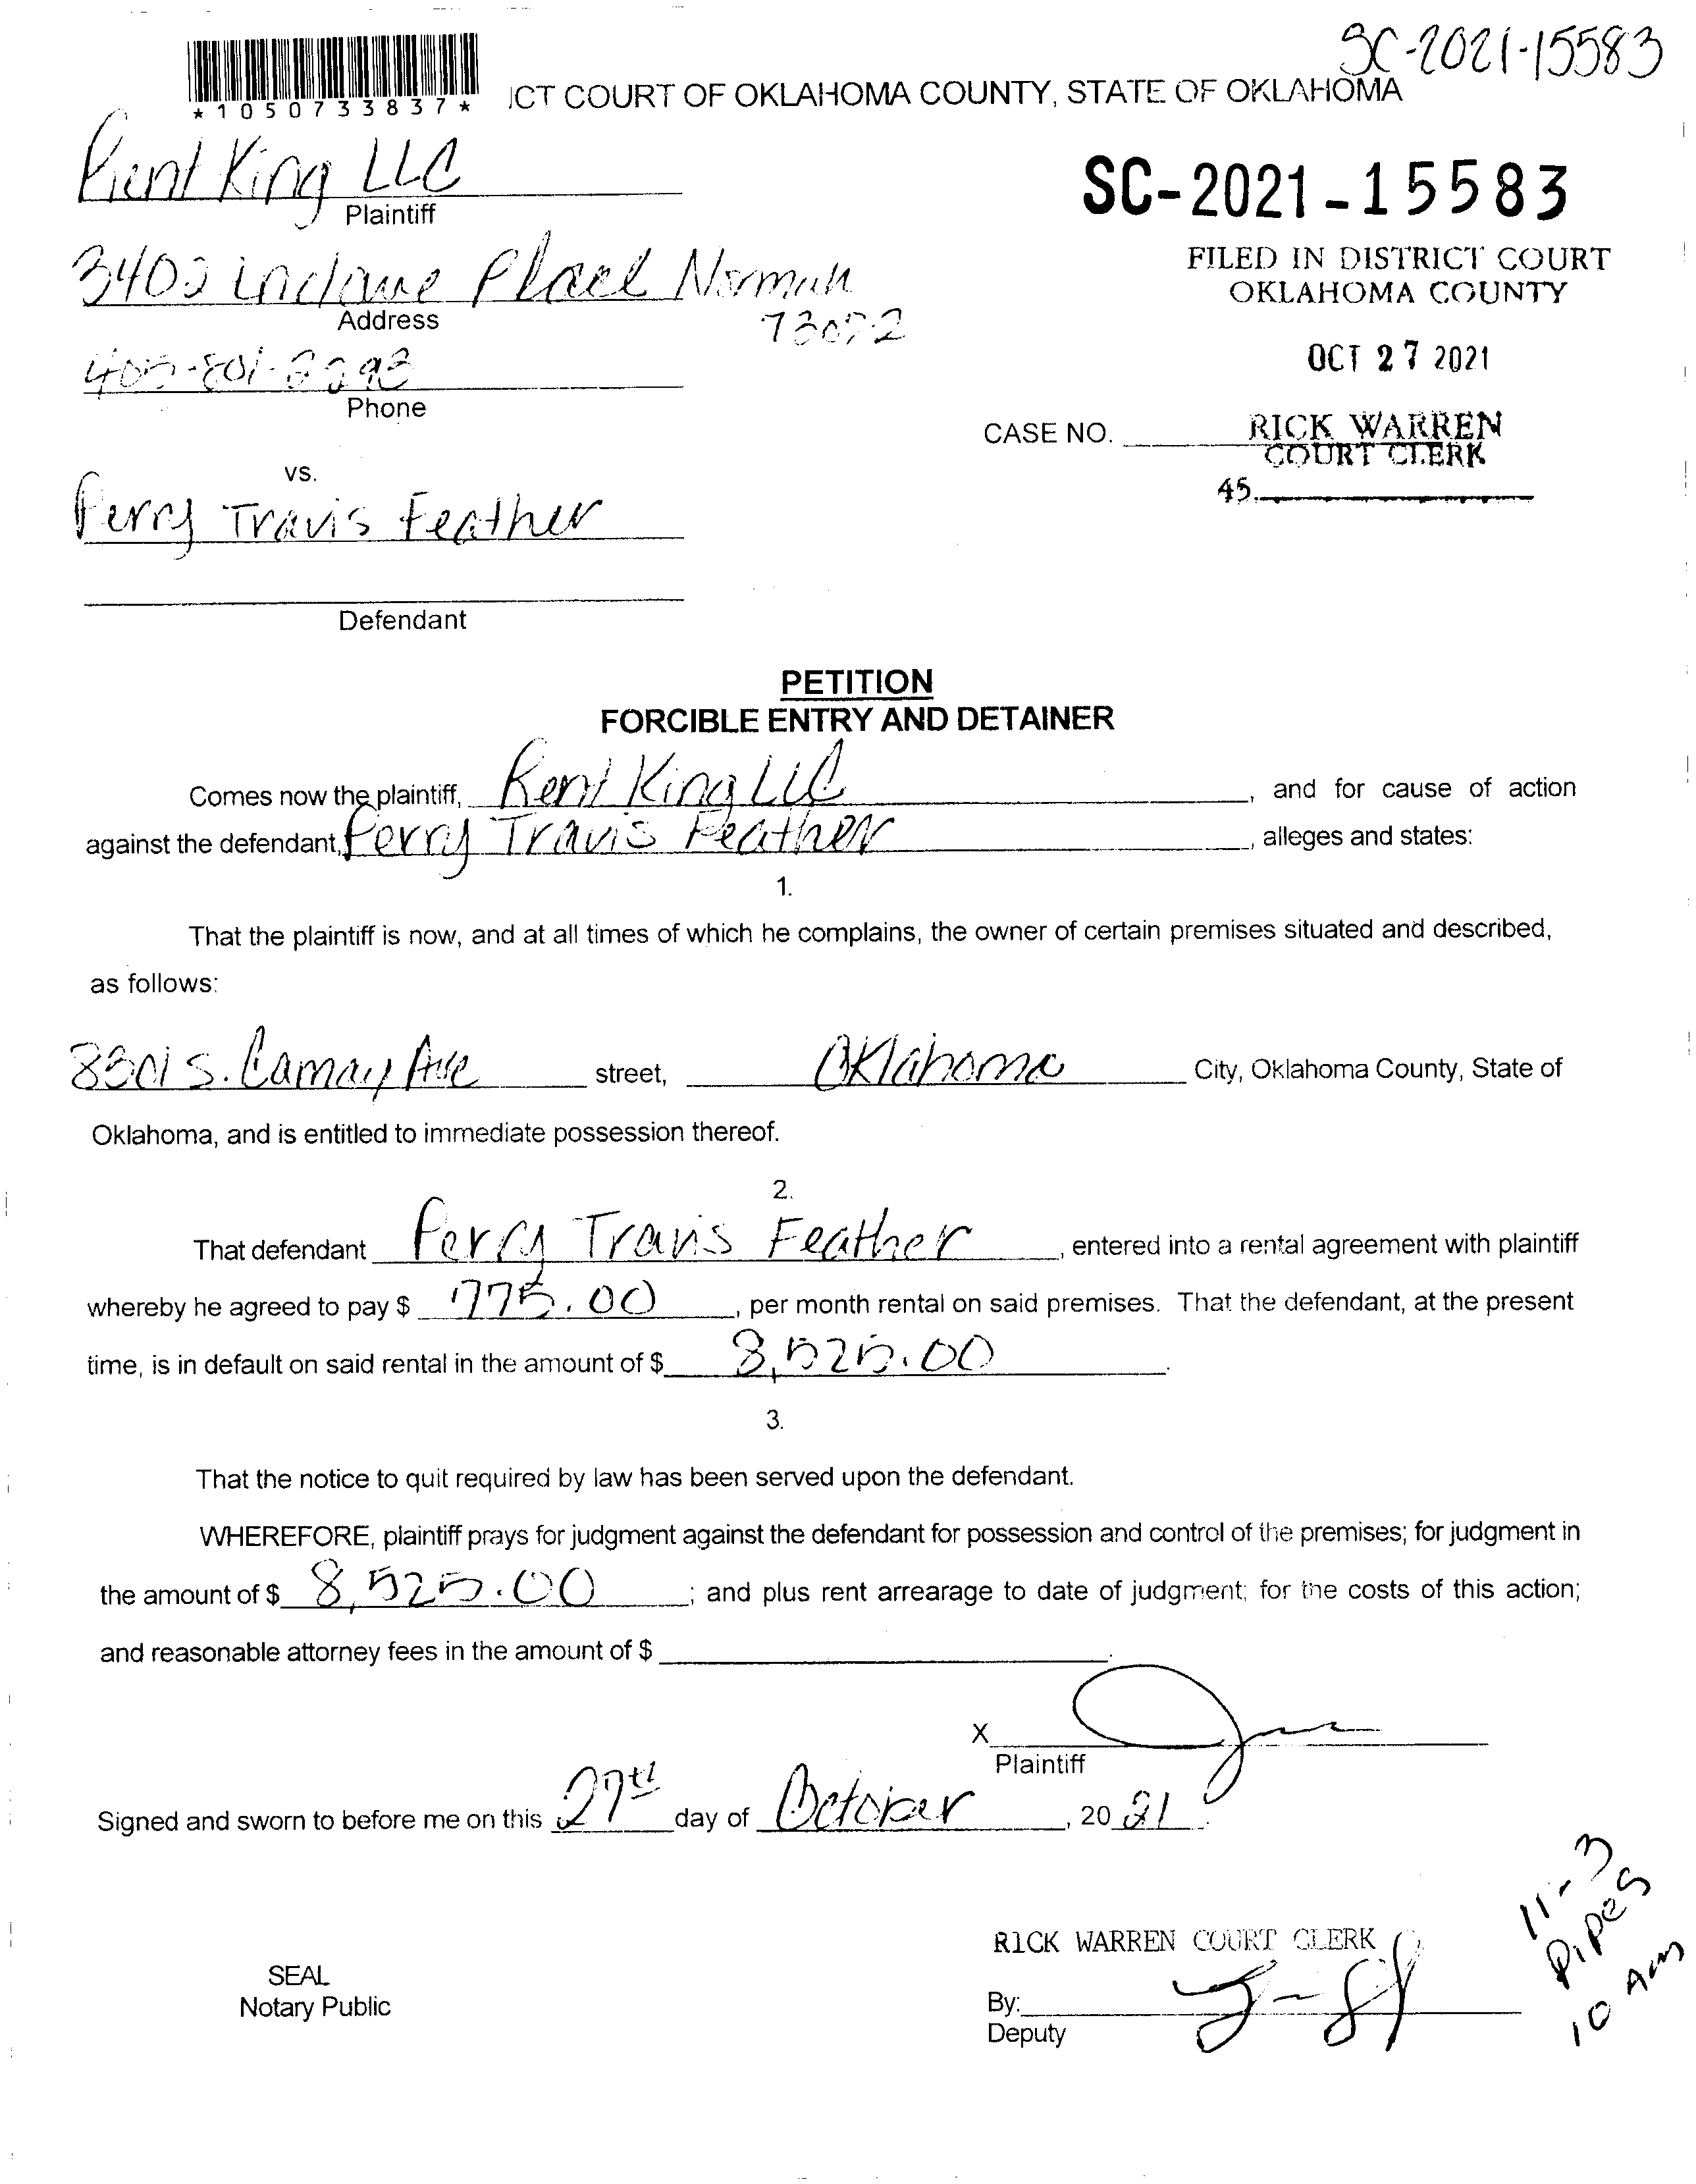 SC-2021-15583
*1050733837* ICT COURT OF OKLAHOMA COUNTY, STATE OF OKLAHOMA
Rent King LLC
Plaintiff
SC-2021-15583
FILED IN DISTRICT COURT
OKLAHOMA COUNTY
3402 Place Norman
Address
OCT 27 2021
Phone
CASE NO.
RICK WARREN
COURT CLERK
45
vs.
Perry Travis Feather
Defendant
PETITION
FORCIBLE ENTRY AND DETAINER
Comes now the plaintiff, Rent King LLC, and for cause of action
against the defendant, Perry Travis Feather, alleges and states:
1.
That the plaintiff is now, and at all times of which he complains, the owner of certain premises situated and described,
as follows:
8301 S. Camay Ave street, Oklahoma City, Oklahoma County, State of
Oklahoma, and is entitled to immediate possession thereof.
2.
That defendant Perry Travis Feather, entered into a rental agreement with plaintiff
whereby he agreed to pay $ 775.00, per month rental on said premises. That the defendant, at the present
time, is in default on said rental in the amount of $ 8,525.00.
3.
That the notice to quit required by law has been served upon the defendant.
WHEREFORE, plaintiff prays for judgment against the defendant for possession and control of the premises; for judgment in
the amount of $ 8,525.00; and plus rent arrearage to date of judgment; for the costs of this action;
and reasonable attorney fees in the amount of $
X
Plaintiff
Signed and sworn to before me on this 27th day of October, 2021.
11-3
Pipes
10 Am
RICK WARREN COURT CLERK
SEAL
Notary Public
By:
Deputy